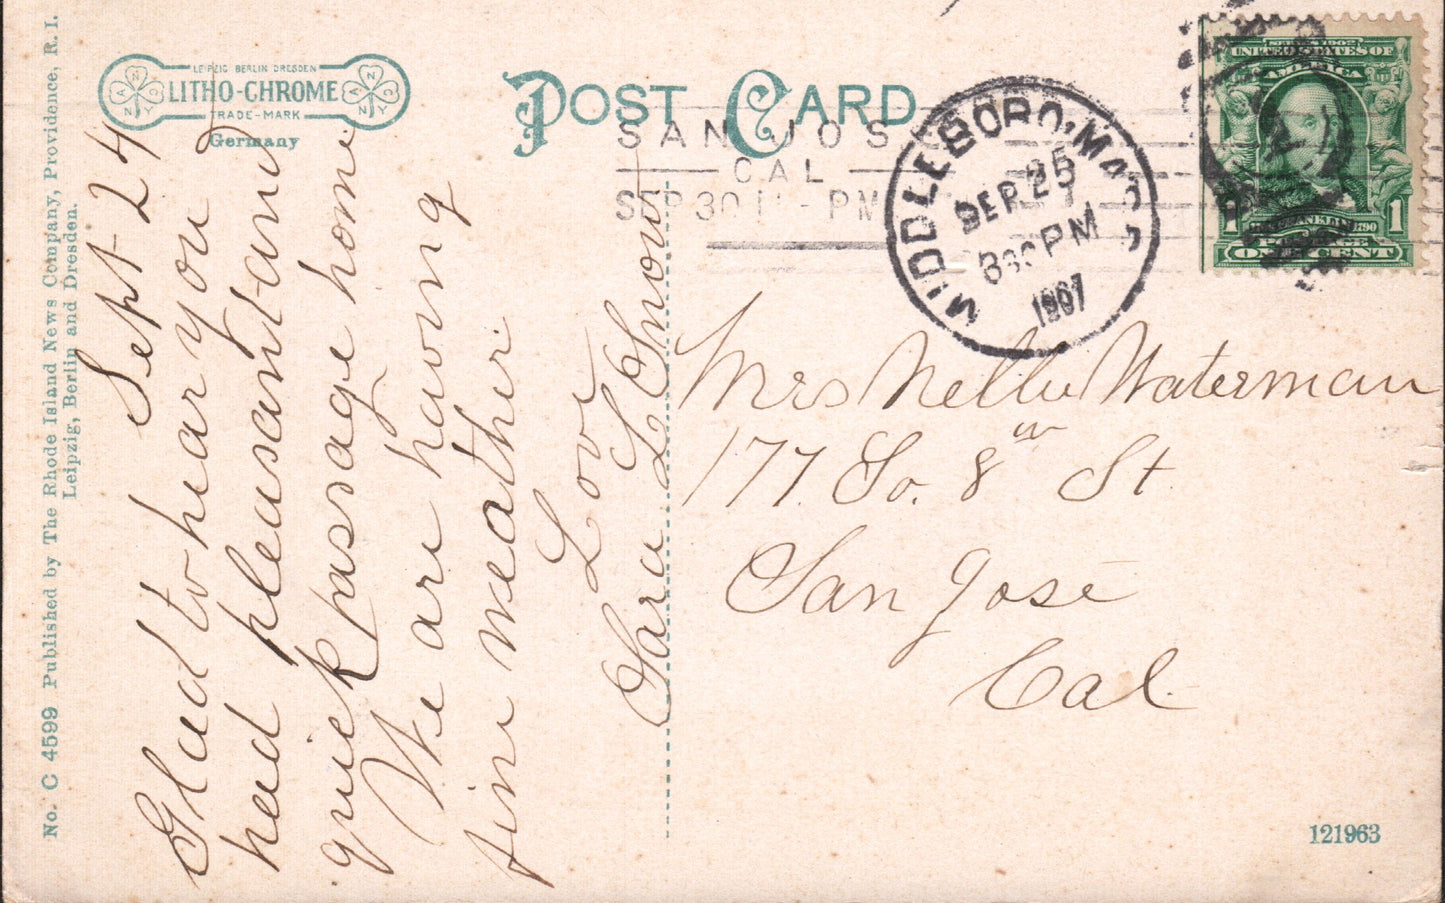 No. C 4599 Published by The Rhode Island News Company, Providence, R. I.
Leipzig, Berlin and Dresden.
LEIPZIG BERLIN DRESDEN
LITHO-CHROME
TRADE-MARK
Germany
POST CARD
SAN JOSE
CAL
SEP 30 11 - PM
MIDDLEBORO, MASS
SEP 25
830 PM
1907
SERIES 1902
UNITED STATES OF
AMERICA
FRANKLIN 1790
1 1
POSTAGE
ONE CENT
Sept 24
Glad to hear you
had pleasant and
quick passage home
We are having
fine weather.
Love
Sara L Snow
Mrs Nellie Waterman
177 So. 8th St
San José
Cal.
121963